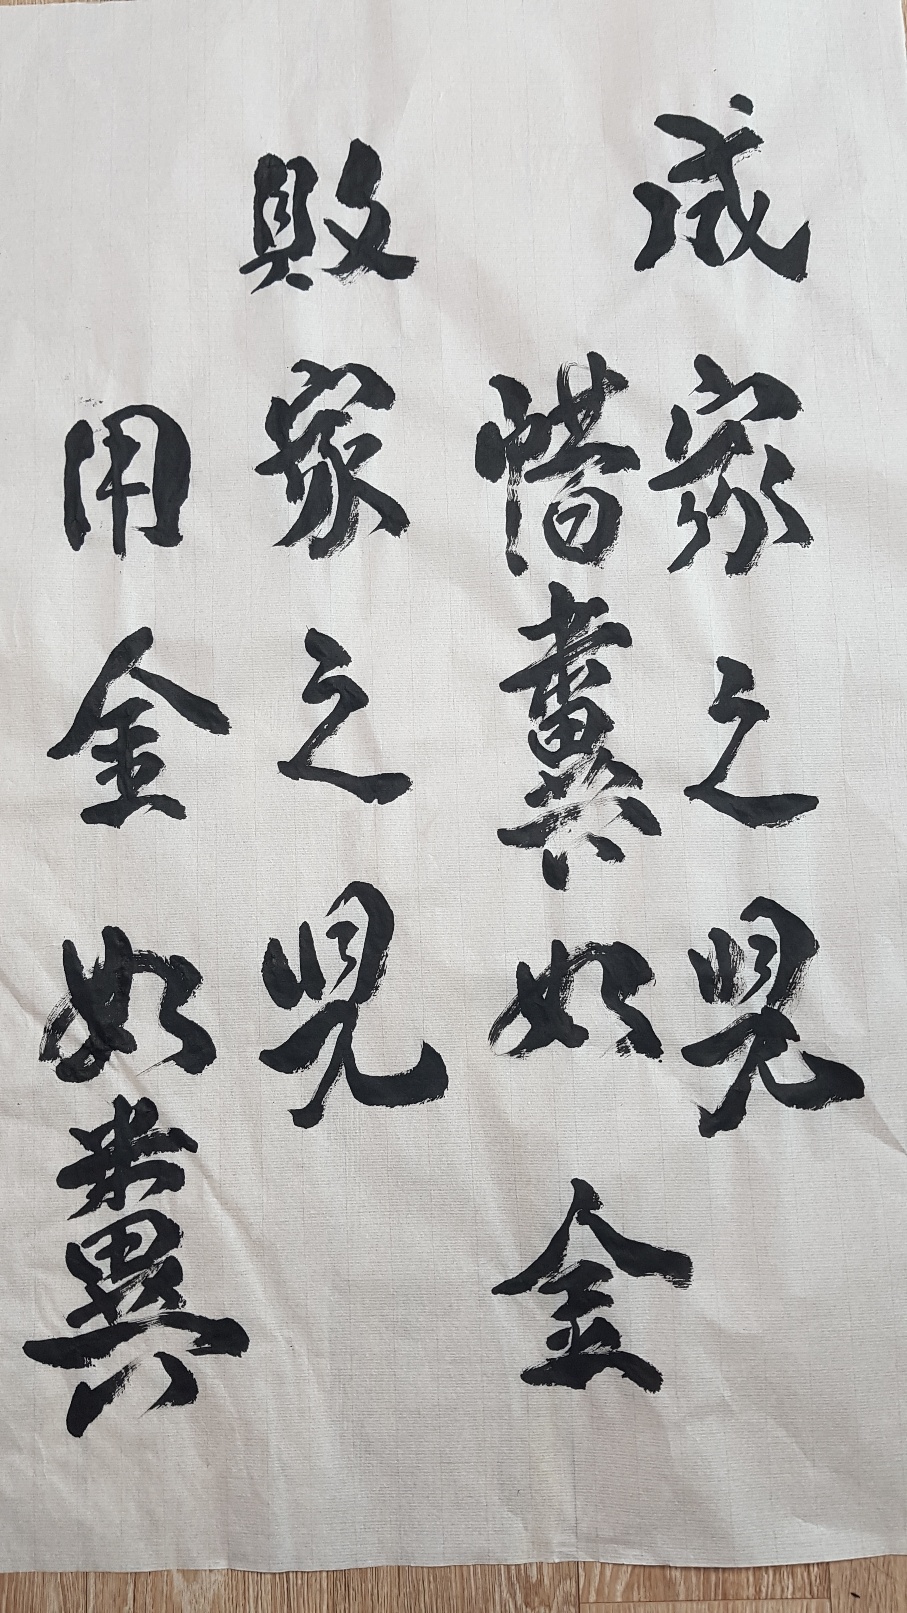 成家之兒
惜糞如金
敗家之兒
用金如糞